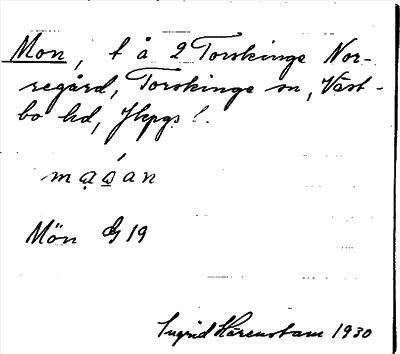 Mon, t å 2 Torskinge Nor-
regård, Torskinge sn, Väst-
bo hd, Jkpgs l.
Mön G 19
Ingrid Härenstam 1930